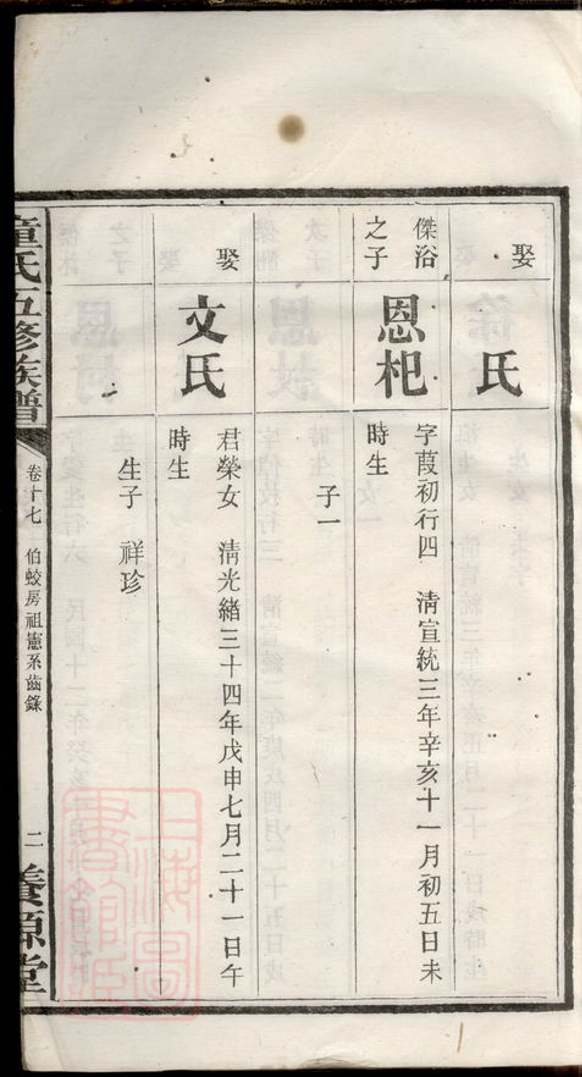 娶
氏
傑浴
之子
恩杷
字葭初行四 清宣統三年辛亥十一月初五日未
時生
子一
娶
文氏
君榮女 清光緒三十四年戊申七月二十一日午
時生
生子 祥珍
童氏五修族譜
卷十七 伯蛟房祖憲系齒錄
二
養源堂
上海圖
書館藏